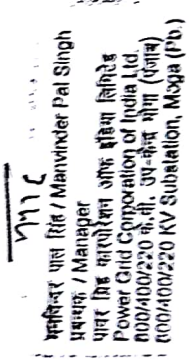 मनविन्दर पाल सिंह / Manvinder Pal Singh
प्रबन्धक / Manager
पावर ग्रिड कारपोरेशन ऑफ इंडिया लिमिटेड
Power Grid Corporation of India Ltd.
800/400/220 के.वी. उप-केन्द्र मोगा (पंजाब)
800/400/220 KV Substation, Moga (Pb.)